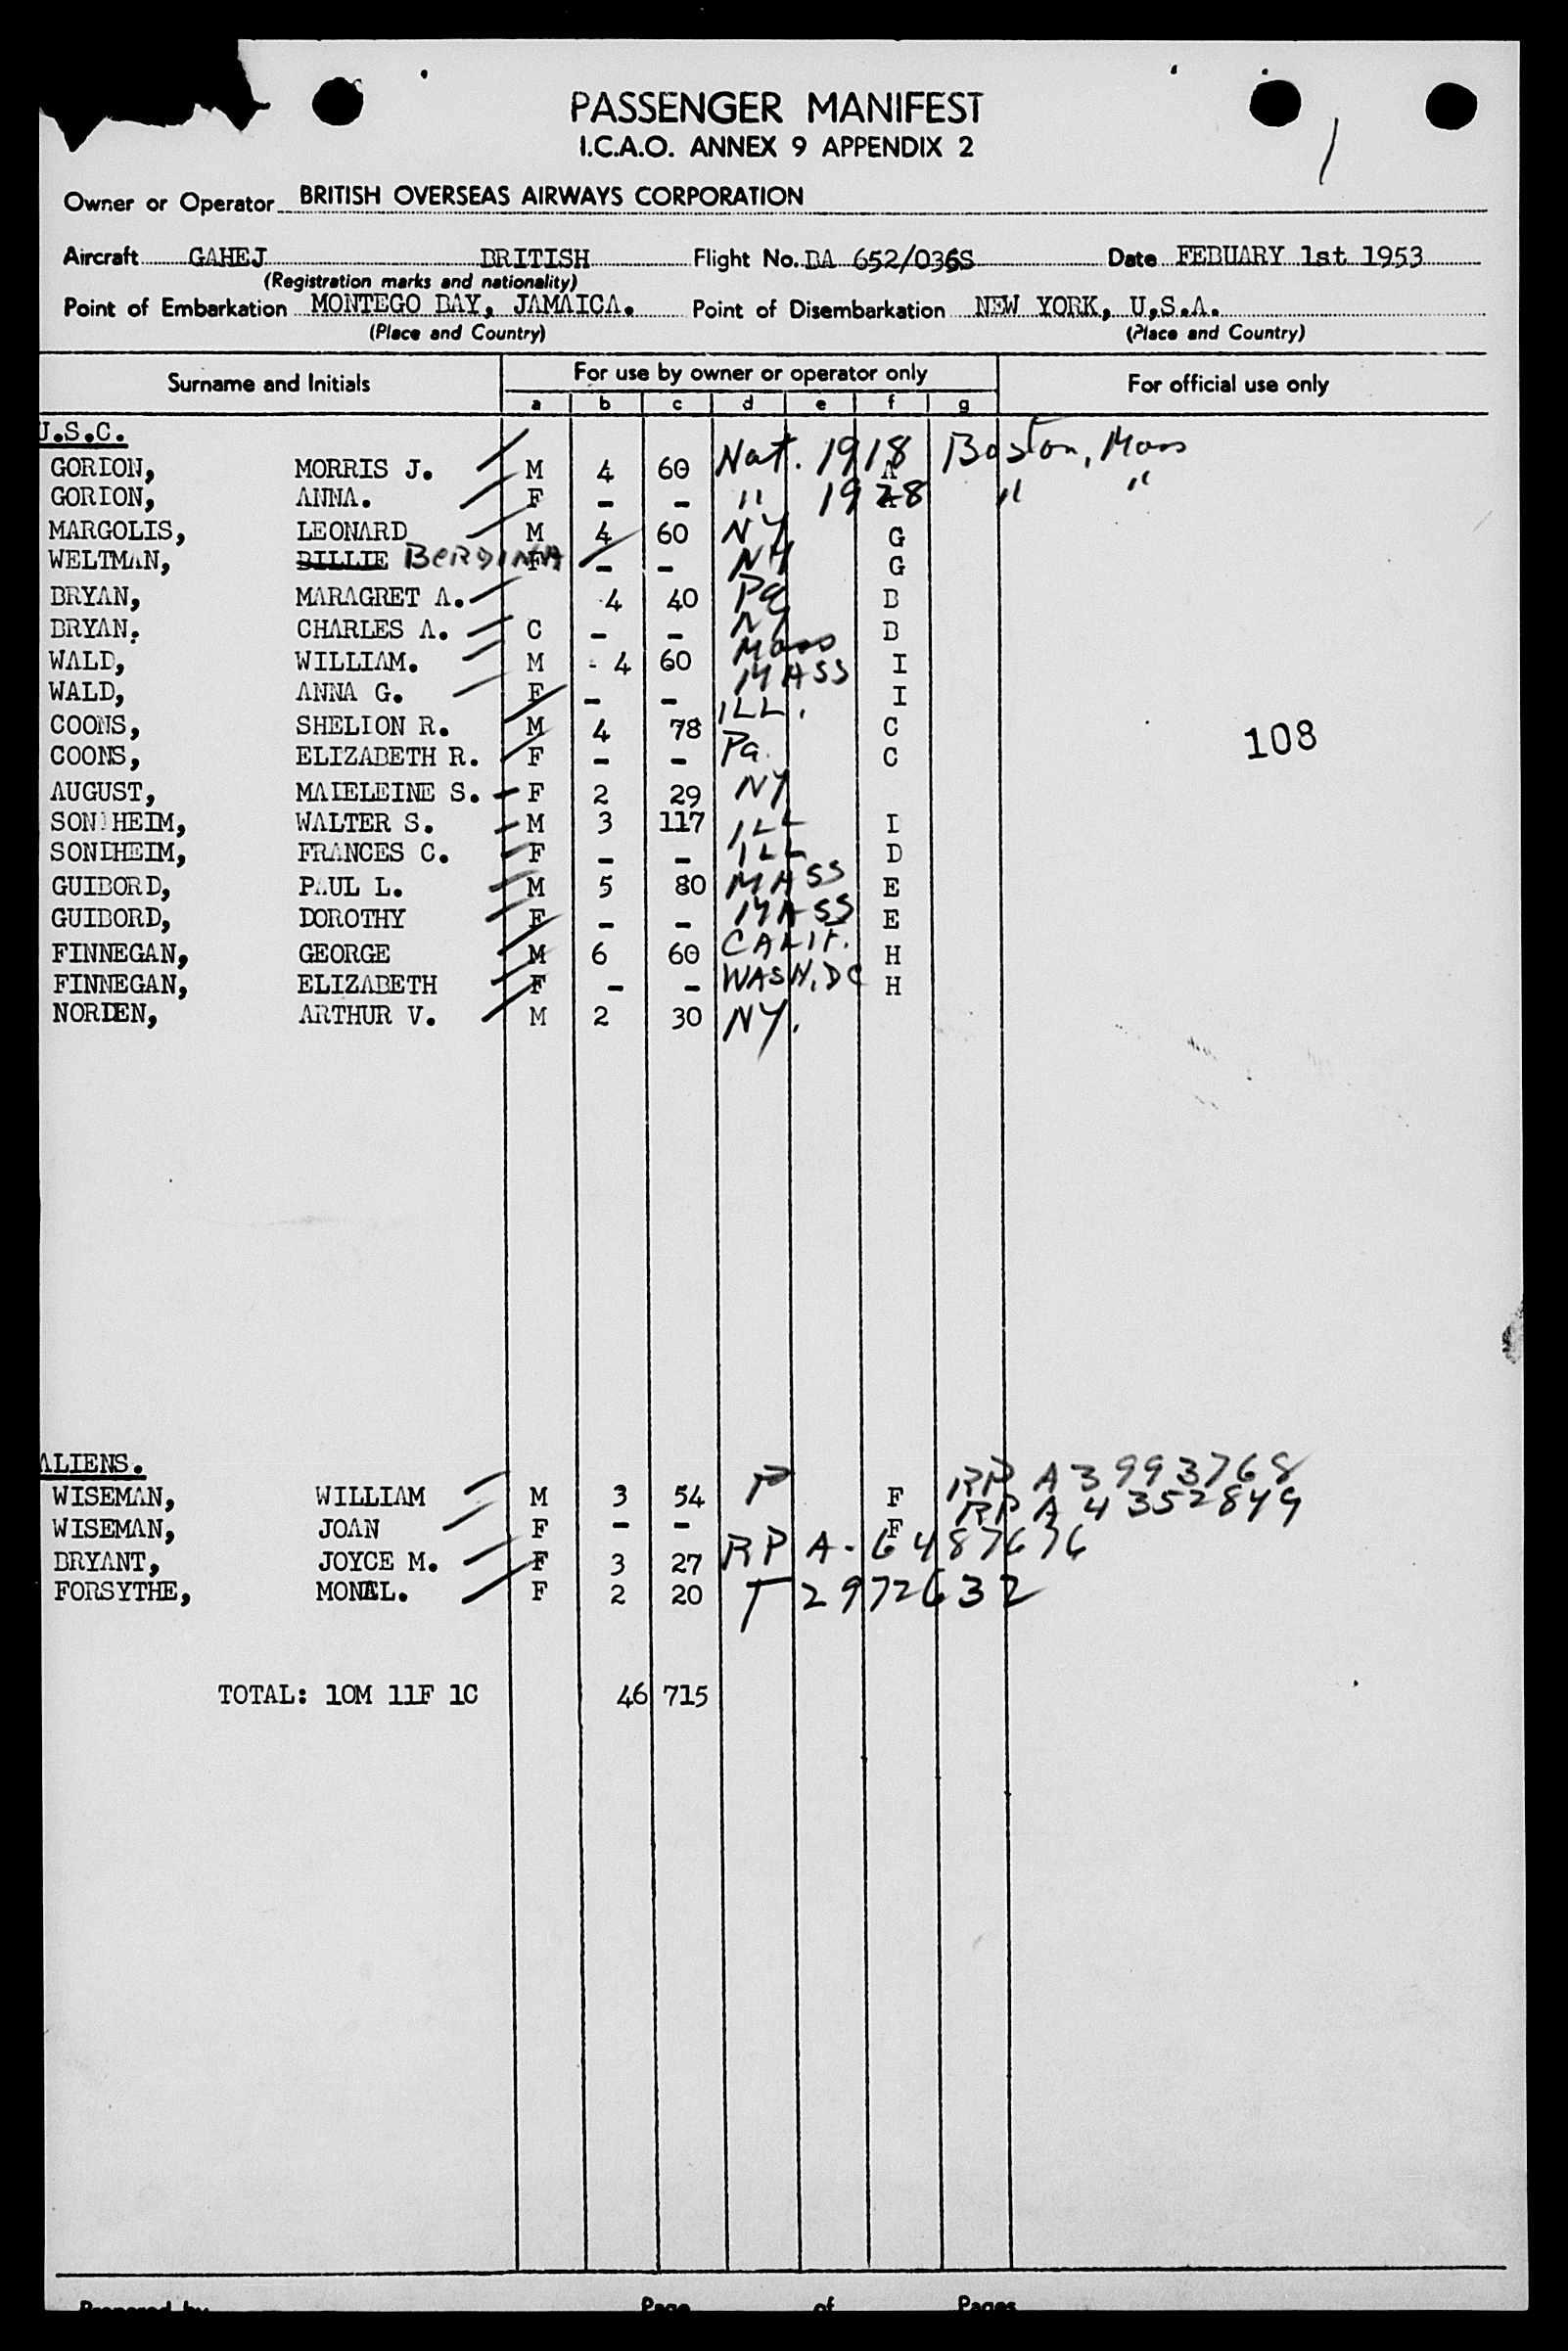 PASSENGER MANIFEST
I.C.A.O. ANNEX 9 APPENDIX 2
Owner or Operator BRITISH OVERSEAS AIRWAYS CORPORATION
Aircraft GAHEJ BRITISH Flight No. BA 652/036S Date FEBUARY 1st 1953
(Registration marks and nationality)
Point of Embarkation MONTEGO BAY, JAMAICA. Point of Disembarkation NEW YORK, U,S.A.
(Place and Country) (Place and Country)
Surname and Initials For use by owner or operator only For official use only
a b c d e f g
U.S.C.
GORDON, MORRIS J. M 4 60 Nat. 1918 A Boston, Mass
GORDON, ANNA. F - - " 1928 A " "
MARGOLIS, LEONARD M 4 60 NY G
WELTMAN, BILLIE BERDINNA F - - NH G
BRYAN, MARAGRET A. 4 40 Pa B
BRYAN. CHARLES A. C - - NY B
WALD, WILLIAM. M 4 60 Mass I
WALD, ANNA G. F - - MASS I
COONS, SHELION R. M 4 78 ILL. C
COONS, ELIZABETH R. F - - Pa. C
108
AUGUST, MADELEINE S. F 2 29 NY
SONDHEIM, WALTER S. M 3 117 ILL I
SONDHEIM, FRANCES C. F - - ILL D
GUIBORD, PAUL L. M 5 80 MASS E
GUIBORD, DOROTHY F - - MASS E
FINNEGAN, GEORGE M 6 60 CALIF. H
FINNEGAN, ELIZABETH F - - WASH, DC H
NORDEN, ARTHUR V. M 2 30 NY.
ALIENS.
WISEMAN, WILLIAM M 3 54 P F RP A 3993768
WISEMAN, JOAN F - - F RP A 4352849
BRYANT, JOYCE M. F 3 27 RP A-6487676
FORSYTHE, MONA L. F 2 20 T 2972632
TOTAL: 10M 11F 1C 46 715
Prepared by Page of Pages